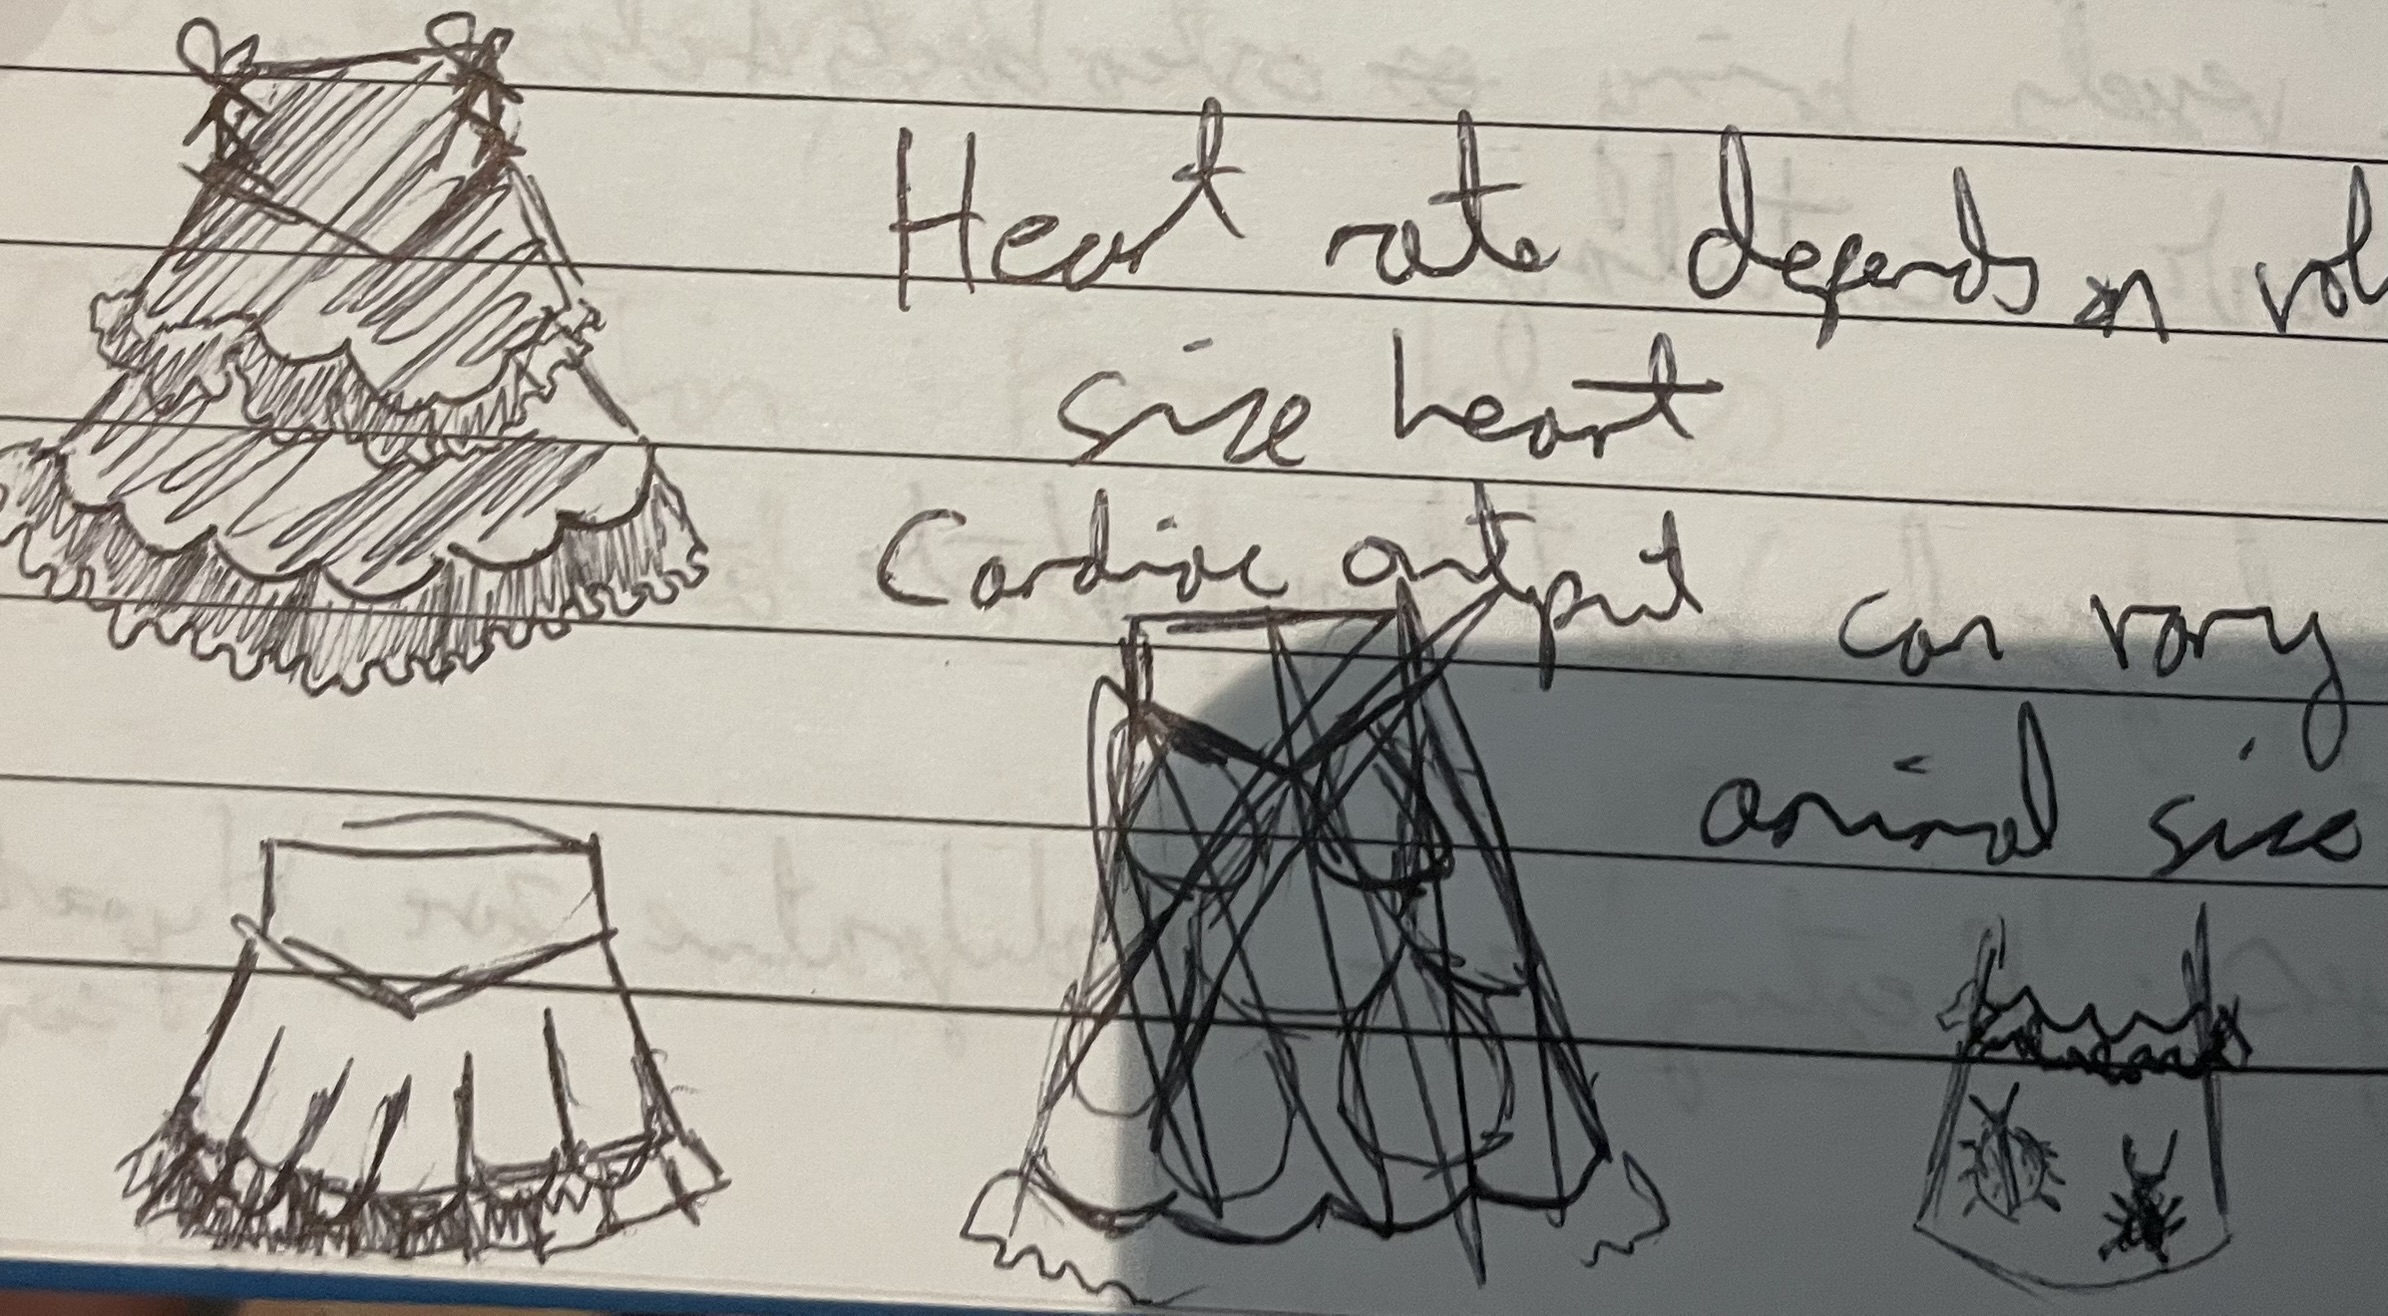 Heart rate depends on vol
size heart
Cardiac output can vary
animal size